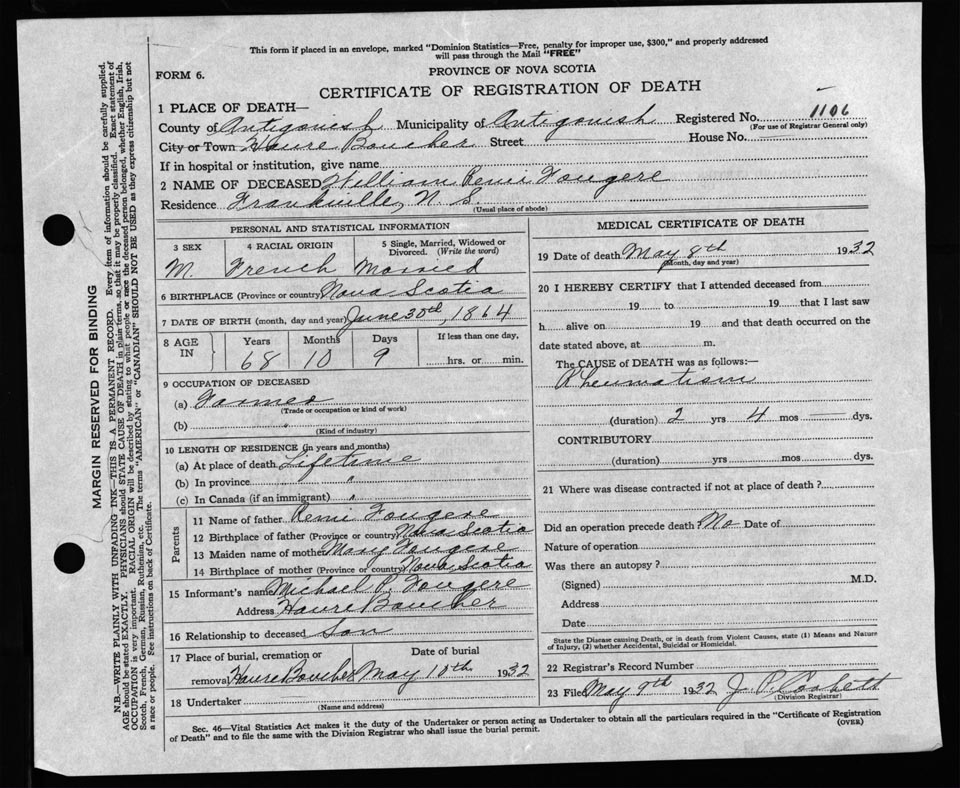 This form if placed in an envelope, marked "Dominion Statistics—Free, penalty for improper use, $300," and properly addressed
will pass through the Mail "FREE"
FORM 6.
PROVINCE OF NOVA SCOTIA
CERTIFICATE OF REGISTRATION OF DEATH
1 PLACE OF DEATH—
Registered No. 1106
(For use of Registrar General only)
County of Antigonish Municipality of Antigonish
City or Town Havre Boucher Street House No.
If in hospital or institution, give name
2 NAME OF DECEASED William Remi Fougere
Residence Frankville, N. S.
(Usual place of abode)
PERSONAL AND STATISTICAL INFORMATION
3 SEX 4 RACIAL ORIGIN 5 Single, Married, Widowed or
Divorced. (Write the word)
M. French Married
6 BIRTHPLACE (Province or country) Nova Scotia
7 DATE OF BIRTH (month, day and year) June 30th, 1864
8 AGE IN Years Months Days If less than one day,
68 10 9 hrs. or min.
9 OCCUPATION OF DECEASED
(a) Farmer
(Trade or occupation or kind of work)
(b) "
(Kind of industry)
10 LENGTH OF RESIDENCE (in years and months)
(a) At place of death Lifetime
(b) In province "
(c) In Canada (if an immigrant) "
Parents
11 Name of father Remi Fougere
12 Birthplace of father (Province or country) Nova Scotia
13 Maiden name of mother Mary Fougere
14 Birthplace of mother (Province or country) Nova Scotia
15 Informant's name Michael P. Fougere
Address Havre Boucher
16 Relationship to deceased Son
17 Place of burial, cremation or Date of burial
removal Havre Boucher May 10th 1932
18 Undertaker
(Name and address)
MEDICAL CERTIFICATE OF DEATH
19 Date of death May 8th 1932
(Month, day and year)
20 I HEREBY CERTIFY that I attended deceased from
19 to 19 that I last saw
h alive on 19 and that death occurred on the
date stated above, at m.
The CAUSE of DEATH was as follows:—
Rheumatism
(duration) 2 yrs 4 mos dys.
CONTRIBUTORY
(duration) yrs mos dys.
21 Where was disease contracted if not at place of death ?
Did an operation precede death? No Date of
Nature of operation
Was there an autopsy ?
(Signed) M.D.
Address
Date
State the Disease causing Death, or in death from Violent Causes, state (1) Means and Nature
of Injury, (2) whether Accidental, Suicidal or Homicidal.
22 Registrar's Record Number
23 Filed May 9th 1932 J. P. Corbett
(Division Registrar)
Sec. 46—Vital Statistics Act makes it the duty of the Undertaker or person acting as Undertaker to obtain all the particulars required in the "Certificate of Registration
of Death" and to file the same with the Division Registrar who shall issue the burial permit.
(OVER)
MARGIN RESERVED FOR BINDING
N.B.—WRITE PLAINLY WITH UNFADING INK—THIS IS A PERMANENT RECORD. Every item of information should be carefully supplied.
AGE should be stated EXACTLY. PHYSICIANS should STATE CAUSE OF DEATH in plain terms, so that it may be properly classified. Exact statement of
OCCUPATION is very important. RACIAL ORIGIN will be described by stating to what people or race the deceased person belonged, whether English, Irish,
Scotch, French, German, Russian, Ruthenian, etc. The terms "AMERICAN" or "CANADIAN" SHOULD NOT BE USED as they express citizenship but not
a race or people. See instructions on back of Certificate.